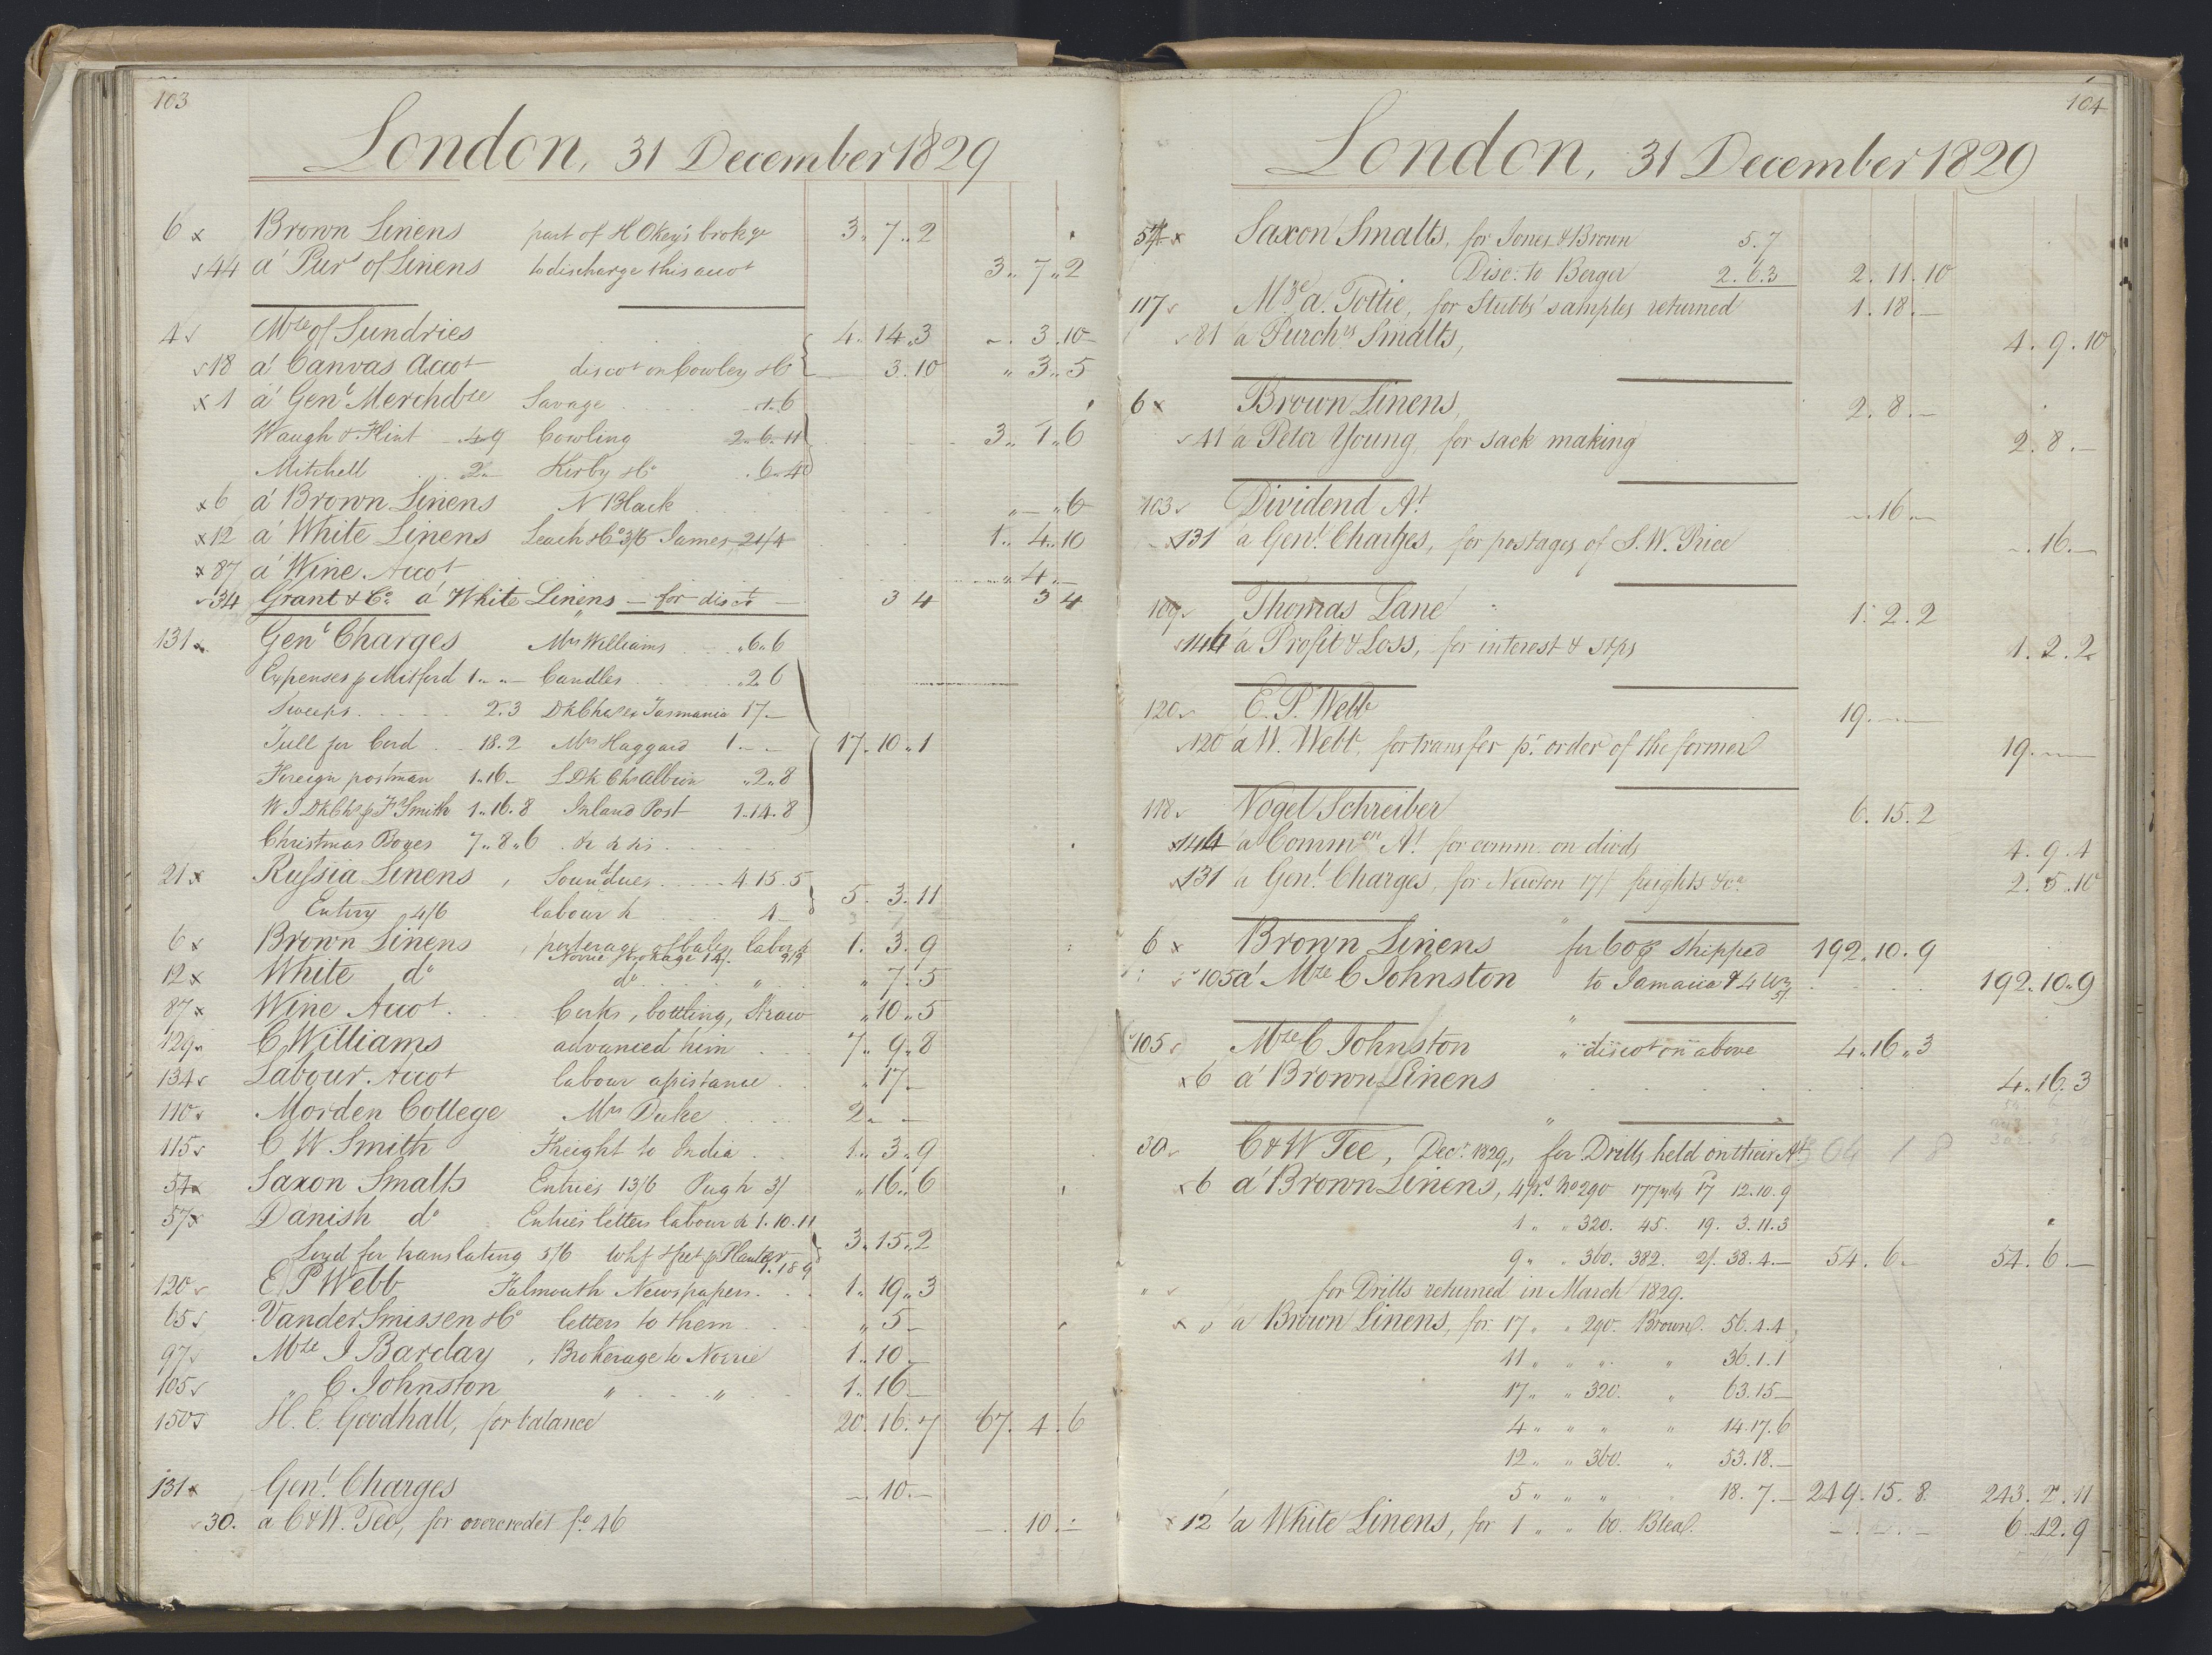 103
London, 31 December 1829
6 x Brown Linens part of H Okey's brokge 3 " 7 " 2
44 a Purs of Linens to discharge this accot 3 " 7 " 2
4 Mze of Sundries 4 . 14 . 3 - . 3 . 10
18 a Canvas Accot discot on Cowley & Co 3 . 10 " 3 " 5
x 1 a Genl Merchdze Savage 1 . 6
Waugh & Flint 4 9 Cowling 2 . 6 . 11 3 " 1 " 6
Mitchell 2 - Kirby & Co . 6 . 4
x 6 a Brown Linens N Black " - " 6
x 12 a White Linens Leach & Co 3/6 James 21/4 1 " 4 . 10
x 87 a Wine Accot " 4 . -
34 Grant & Co a White Linens - for discot - 3 4 3 4
131 Genl Charges Mrs Williams " 6 " 6
Expenses p Mitford 1 " " - Candles . 2 6
Sweeps 2 . 3 Dk Chas ex Tasmania 17 -
Tull for Cord 18 . 2 Mrs Haggard 1 . - - 17 . 10 . 1
Foreign postman 1 . 16 - L Dk Chs Albion " 2 " 8
W I Dk Chs p F Smith 1 . 16 . 8 Inland Post 1 . 14 . 8
Christmas Boxes 7 " 8 " 6
21 x Russia Linens , Sound dues 4 15 . 5
Entry 4/6 labour & 4 - 5 . 3 . 11
6 x Brown Linens , porterage of bales labour
Norrie brokage 14/. 1 . 3 . 9
12 x White do do " " 7 . 5
87 x Wine Accot. Corks, bottling, Straw " 10 " 5
129 C Williams advanced him 7 " 9 . 8
134 Labour Accot labour assistance " 17 -
110 Morden College Mrs Duke 2 " -
115 C W Smith Freight to India 1 " 3 . 9
54 Saxon Smalts Entries 13/6 Pugh 3/ " 16 " 6
57 x Danish do Entries letters labour & 1 . 10 . 11
Loyd for translating 5/6 whf & feet p Planter 1 . 18 9 3 . 15 . 2
120 E P Webb Falmouth Newspapers 1 . 19 . 3
65 Vander Smissen & Co letters to them " 5 -
97 Mze J Barclay , Brokerage to Norrie 1 . 10 -
105 " C Johnston " " 1 . 16 -
150 H. E. Goodhall, for balance 20 . 16 . 7 67 . 4 . 6
131 x Genl Charges - . 10 . -
30. a C & W. Tee, for overcredit fo 46 - . 10 . -
104
London, 31 December 1829
54 x Saxon Smalts, for Jones & Brown 5 . 7
Disc: to Berger 2 . 6 . 3 2 . 11 . 10
117 Mze a. Tottie, for Stubbs' samples returned 1 . 18 . -
81 a Purchs Smalts, 4 . 9 . 10
6 x Brown Linens, 2 . 8 . -
41 a Peter Young, for sack making 2 . 8 . -
103 Dividend At - . 16 . -
131 a Genl Charges, for postages of S. W. Price - . 16 . -
109 Thomas Lane 1 . 2 . 2
144 a Profit & Loss, for interest & stps 1 . 2 . 2
120 E. P. Webb 19 . - -
120 a W. Webb, for transfer pr order of the former 19 . - -
118 Vogel Schreiber 6 . 15 . 2
144 a Common At for comm. on divds 4 . 9 . 4
131 a Genl Charges, for Newton 17/ freights &ca 2 . 5 . 10
6 x Brown Linens for 60 ps shipped 192 . 10 . 9
105 a Mze C Johnston to Jamaica 192 . 10 " 9
105 Mze C Johnston " discot on above 4 . 16 . 3
x 6 a Brown Linens 4 . 16 . 3
30 C & W Tee, Decr 1829, for Drills held on their At 304 1 8
x 6 a Brown Linens, 4 ps No 290 177 yds 17 12 . 10 . 9
1 " " 320. 45. 19. 3 . 11 . 3
9 " " 360. 382. 2/. 38 . 4 . - 54 . 6 - 54 . 6 . -
" for Drills returned in March 1829.
x " a Brown Linens, for 17 " " 290. Brown. 56 . 4 . 4
11 " " " " 36 . 1 . 1
17 " " 320. " 63 . 15 -
4 " " " " 14 . 17 . 6
12 " " 360. " 53 . 18 . -
5 " " " 18 . 7 . - 249 . 15 . 8 243 . 2 . 11
x 12 a White Linens, for 1 " " 60. Blea. - . - . - 6 . 12 . 9